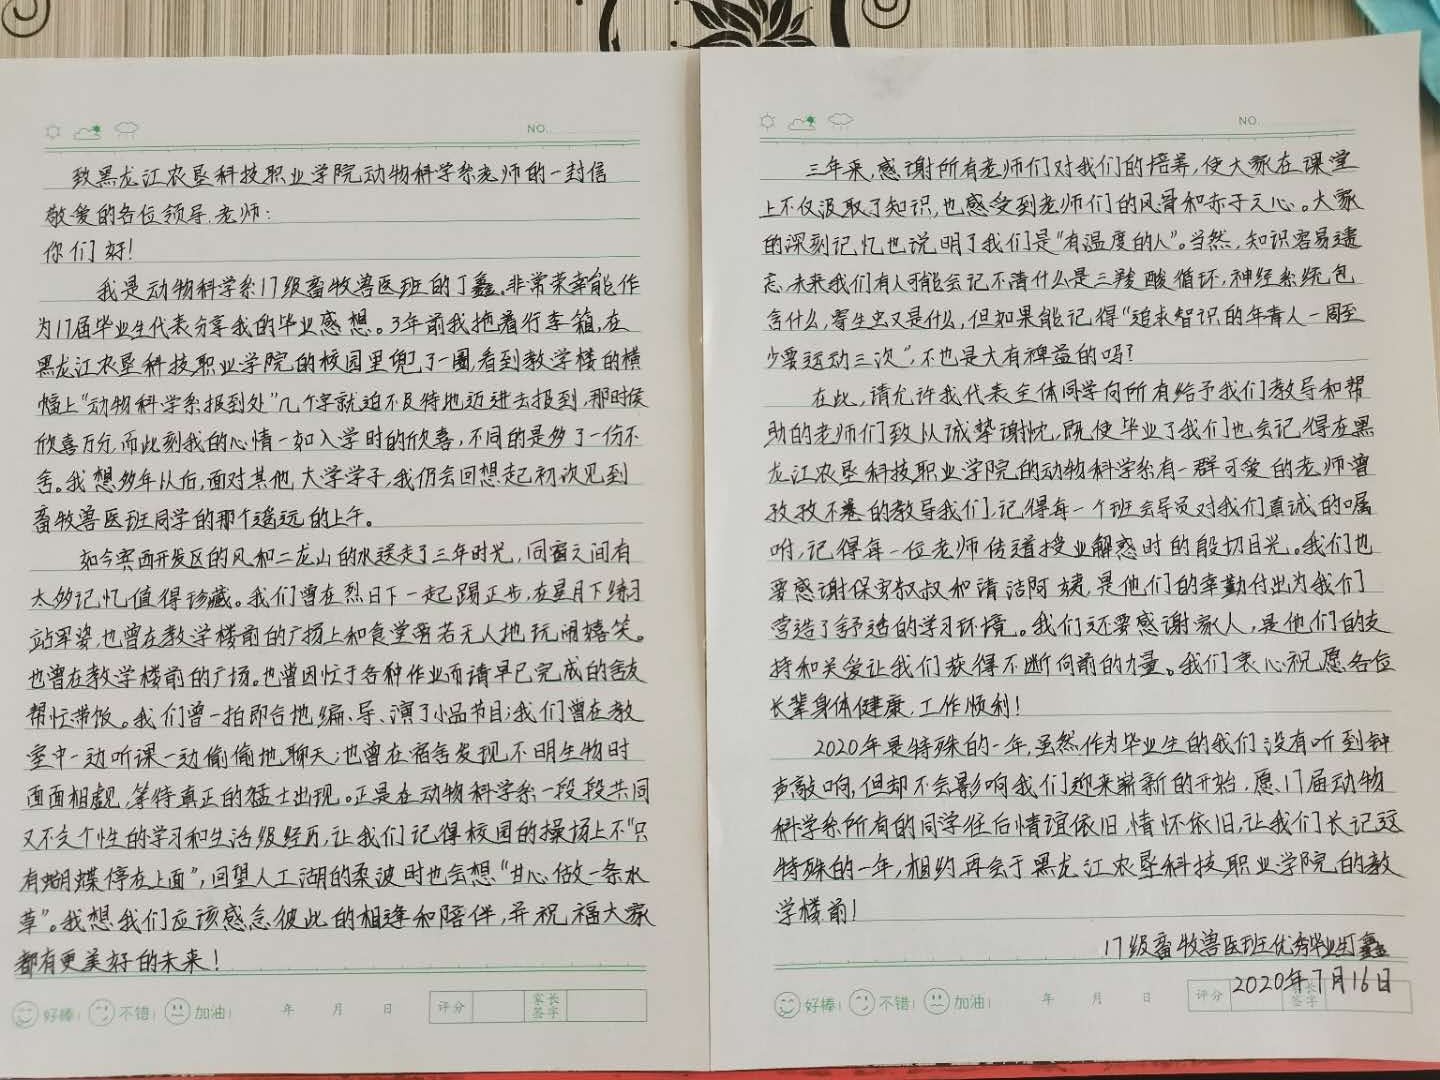 NO.
致黑龙江农垦科技职业学院动物科学系老师的一封信
敬爱的各位领导、老师:
你们好!
我是动物科学系17级畜牧兽医班的丁鑫,非常荣幸能作
为17届毕业生代表分享我的毕业感想。3年前我拖着行李箱,在
黑龙江农垦科技职业学院的校园里兜了一圈,看到教学楼的横
幅上“动物科学系报到处”几个字就迫不及待地迈进去报到,那时侯
欣喜万分,而此刻我的心情一如入学时的欣喜,不同的是多了一份不
舍。我想多年以后,面对其他大学学子,我仍会回想起初次见到
畜牧兽医班同学的那个遥远的上午。
如今宾西开发区的风和二龙山的水送走了三年时光,同窗之间有
太多记忆值得珍藏。我们曾在烈日下一起踢正步,在星月下练习
站军姿,也曾在教学楼前的广场上和食堂旁若无人地玩闹嬉笑。
也曾在教学楼前的广场。也曾因忙于各种作业而请早已完成的舍友
帮忙带饭。我们曾一拍即合地编、导、演了小品节目;我们曾在教
室中一边听课一边偷偷地聊天;也曾在宿舍发现不明生物时
面面相觑,等待真正的猛士出现。正是在动物科学系一段段共同
又不失个性的学习和生活级经历,让我们记得校园的操场上不“只
有蝴蝶停在上面”,回望人工湖的柔波时也会想“甘心做一条水
草”。我想我们应该感念彼此的相逢和陪伴,并祝福大家
都有更美好的未来!
好棒! 不错! 加油! 年 月 日 评分 家长签字
NO.
三年来,感谢所有老师们对我们的培养,使大家在课堂
上不仅汲取了知识,也感受到老师们的风骨和赤子之心。大家
的深刻记忆也说明了我们是“有温度的人”。当然,知识容易遗
忘,未来我们有人可能会记不清什么是三羧酸循环,神经系统包
含什么,寄生虫又是什么,但如果能记得“追求智识的年青人一周至
少要运动三次”,不也是大有裨益的吗?
在此,请允许我代表全体同学向所有给予我们教导和帮
助的老师们致以诚挚谢忱,既使毕业了我们也会记得在黑
龙江农垦科技职业学院的动物科学系有一群可爱的老师曾
孜孜不惓的教导我们,记得每一个班会导员对我们真诚的嘱
咐,记得每一位老师传道授业解惑时的殷切目光。我们也
要感谢保安叔叔和清洁阿姨,是他们的辛勤付出为我们
营造了舒适的学习环境。我们还要感谢家人,是他们的支
持和关爱让我们获得不断向前的力量。我们衷心祝愿各位
长辈身体健康,工作顺利!
2020年是特殊的一年,虽然作为毕业生的我们没有听到钟
声敲响,但却不会影响我们迎来崭新的开始,愿17届动物
科学系所有的同学往后情谊依旧,情怀依旧,让我们长记这
特殊的一年,相约再会于黑龙江农垦科技职业学院的教
学楼前!
17级畜牧兽医班优秀毕业生丁鑫
2020年7月16日
好棒! 不错! 加油! 年 月 日 评分 家长签字